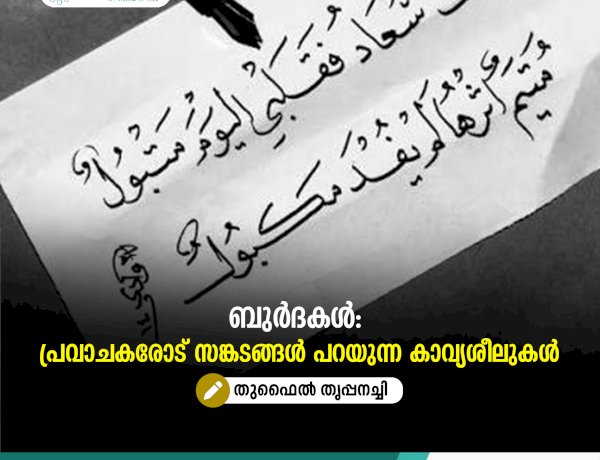 سعاد فقلبي اليوم متبول
متيم إثرها لم يفد مكبول
ബുർദകൾ:
പ്രവാചകരോട് സങ്കടങ്ങൾ പറയുന്ന കാവ്യശീലുകൾ
തുഫൈൽ തൃപ്പനച്ചി